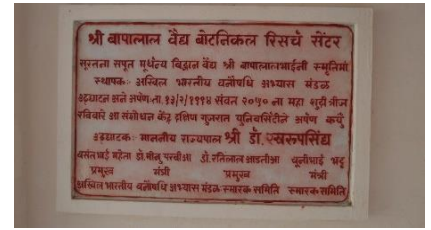 श्री बापालाल वैद्य बोटनिकल रिसर्च सेंटर
सूरतना सपूत मूर्धन्य विद्वान वैद्य श्री बापालालभाईनी स्मृतिमां
स्थापक: अखिल भारतीय वनौषधि अभ्यास मंडळ
उद्घाटन अने अर्पण ता. १३/२/१९९४ संवत २०५० ना महा सुदी त्रीज
रविवारे आ संशोधन केंद्र दक्षिण गुजरात युनिवर्सिटीने अर्पण कर्युं
उद्घाटक: माननीय राज्यपाल श्री डॉ. स्वरूपसिंघ
वसंतभाई महेता डॉ. मीनु परबीआ डॉ. रतिलाल चुनीभाई भट्ट
प्रमुख मंत्री प्रमुख मंत्री
अखिल भारतीय वनौषधि अभ्यास मंडळ स्मारक समिति स्मारक समिति